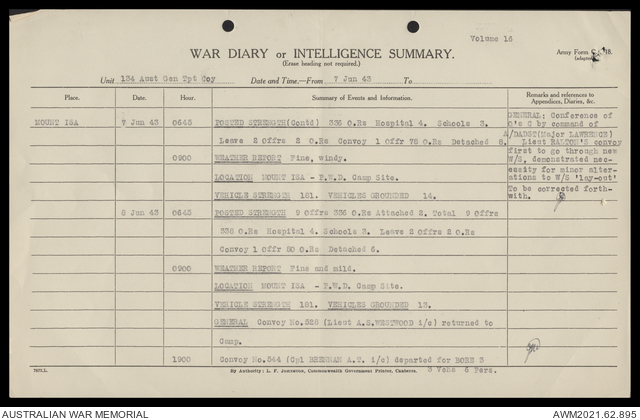 Volume 16
WAR DIARY or INTELLIGENCE SUMMARY.
(Erase heading not required.)
Army Form C. 118.
(adapted)
Unit 134 Aust Gen Tpt Coy Date and Time.—From 7 Jun 43 To
Place. Date. Hour. Summary of Events and Information. Remarks and references to Appendices, Diaries, &c.
MOUNT ISA 7 Jun 43 0645 POSTED STRENGTH(Contd) 336 O.Rs Hospital 4. Schools 3.
Leave 2 Offrs 2 O.Rs Convoy 1 Offr 78 O.Rs Detached 8.
0900 WEATHER REPORT Fine, windy.
LOCATION MOUNT ISA - P.W.D. Camp Site.
VEHICLE STRENGTH 181. VEHICLES GROUNDED 14.
GENERAL: Conference of
O's C by command of
A/DADST(Major LAWRENCE)
Lieut RALTON'S convoy
first to go through new
W/S, demonstrated nec-
essity for minor alter-
ations to W/S 'lay-out'
To be corrected forth-
with.
8 Jun 43 0645 POSTED STRENGTH 9 Offrs 336 O.Rs Attached 2. Total 9 Offrs
338 O.Rs Hospital 4. Schools 3. Leave 2 Offrs 2 O.Rs
Convoy 1 Offr 80 O.Rs Detached 6.
0900 WEATHER REPORT Fine and mild.
LOCATION MOUNT ISA - P.W.D. Camp Site.
VEHICLE STRENGTH 181. VEHICLES GROUNDED 12.
GENERAL Convoy No.528 (Lieut A.S.WESTWOOD i/c) returned to
Camp.
1900 Convoy No.544 (Cpl BRENNAN A.T. i/c) departed for
3 Vehs 6 Pers.
By Authority: L. F. Johnston, Commonwealth Government Printer, Canberra.
AUSTRALIAN WAR MEMORIAL
AWM2021.62.895